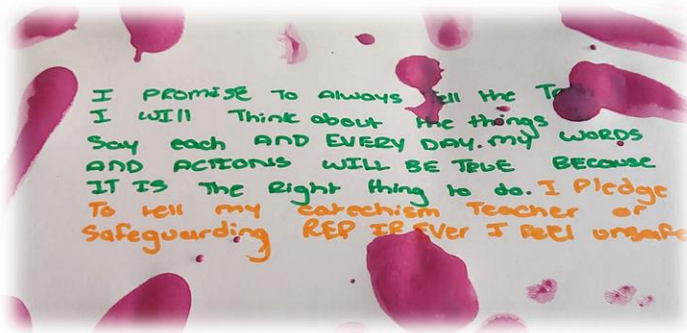 I PROMISE TO Always tell the
I WILL Think about the things
Say each AND EVERY DAY. my WORDS
AND ACTIONS WILL BE TRUE BECAUSE
IT IS The Right thing to do. I Pledge
To tell my catechism Teacher or
Safeguarding REP IF EVER I feel unsafe